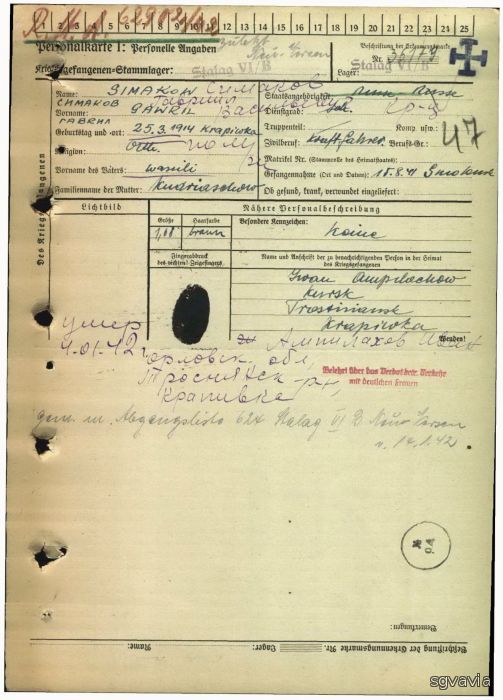 1 2 3 4 5 6 7 8 9 10 11 12 13 14 15 16 17 18 19 20 21 22 23 24 25
zuletzt
Personalkarte I: Personelle Angaben
Beschriftung der Erkennungsmarke
Kriegsgefangenen-Stammlager: Stalag VI/B
Nr. 36179
Lager: Stalag VI/B
Name: SIMAKOW Симаков
СИМАКОВ Гавриил Васильевич
Staatsangehörigkeit: Russe
Vorname: GAWRIL
ГАВРИЛ
Dienstgrad: Sol. кр-ц
Truppenteil: Komp. usw.:
47
Geburtstag und -ort: 25.3.1914 Krapiwka
Zivilberuf: Kraftfahrer Berufs-Gr.:
Religion: Orth.
Matrikel Nr. (Stammrolle des Heimatstaates):
Vorname des Vaters: wasili
Gefangennahme (Ort und Datum): 15.8.41 Smolensk
Familienname der Mutter: Kudriaschow
Ob gesund, krank, verwundet eingeliefert:
Des Kriegsgefangenen
Lichtbild
Nähere Personalbeschreibung
Größe Haarfarbe Besondere Kennzeichen:
1,68 braun Keine
Fingerabdruck
des rechten! Zeigefingers
Name und Anschrift der zu benachrichtigenden Person in der Heimat
des Kriegsgefangenen
Iwan Ampilachow
Kursk
Trostinansk
Krapiwka
Wenden!
умер
4.01.42
Ампилахов Иван
Орловск. обл,
Троснянск. р-н,
Крапивка
Belehrt über das Verbot betr. Verkehr
mit deutschen Frauen
gem. m. Abgangsliste 624 Stalag VI B Neu Versen
v. 14.1.42
Bemerkungen:
Beschriftung der Erkennungsmarke Nr. Lager: Name:
sgvavia